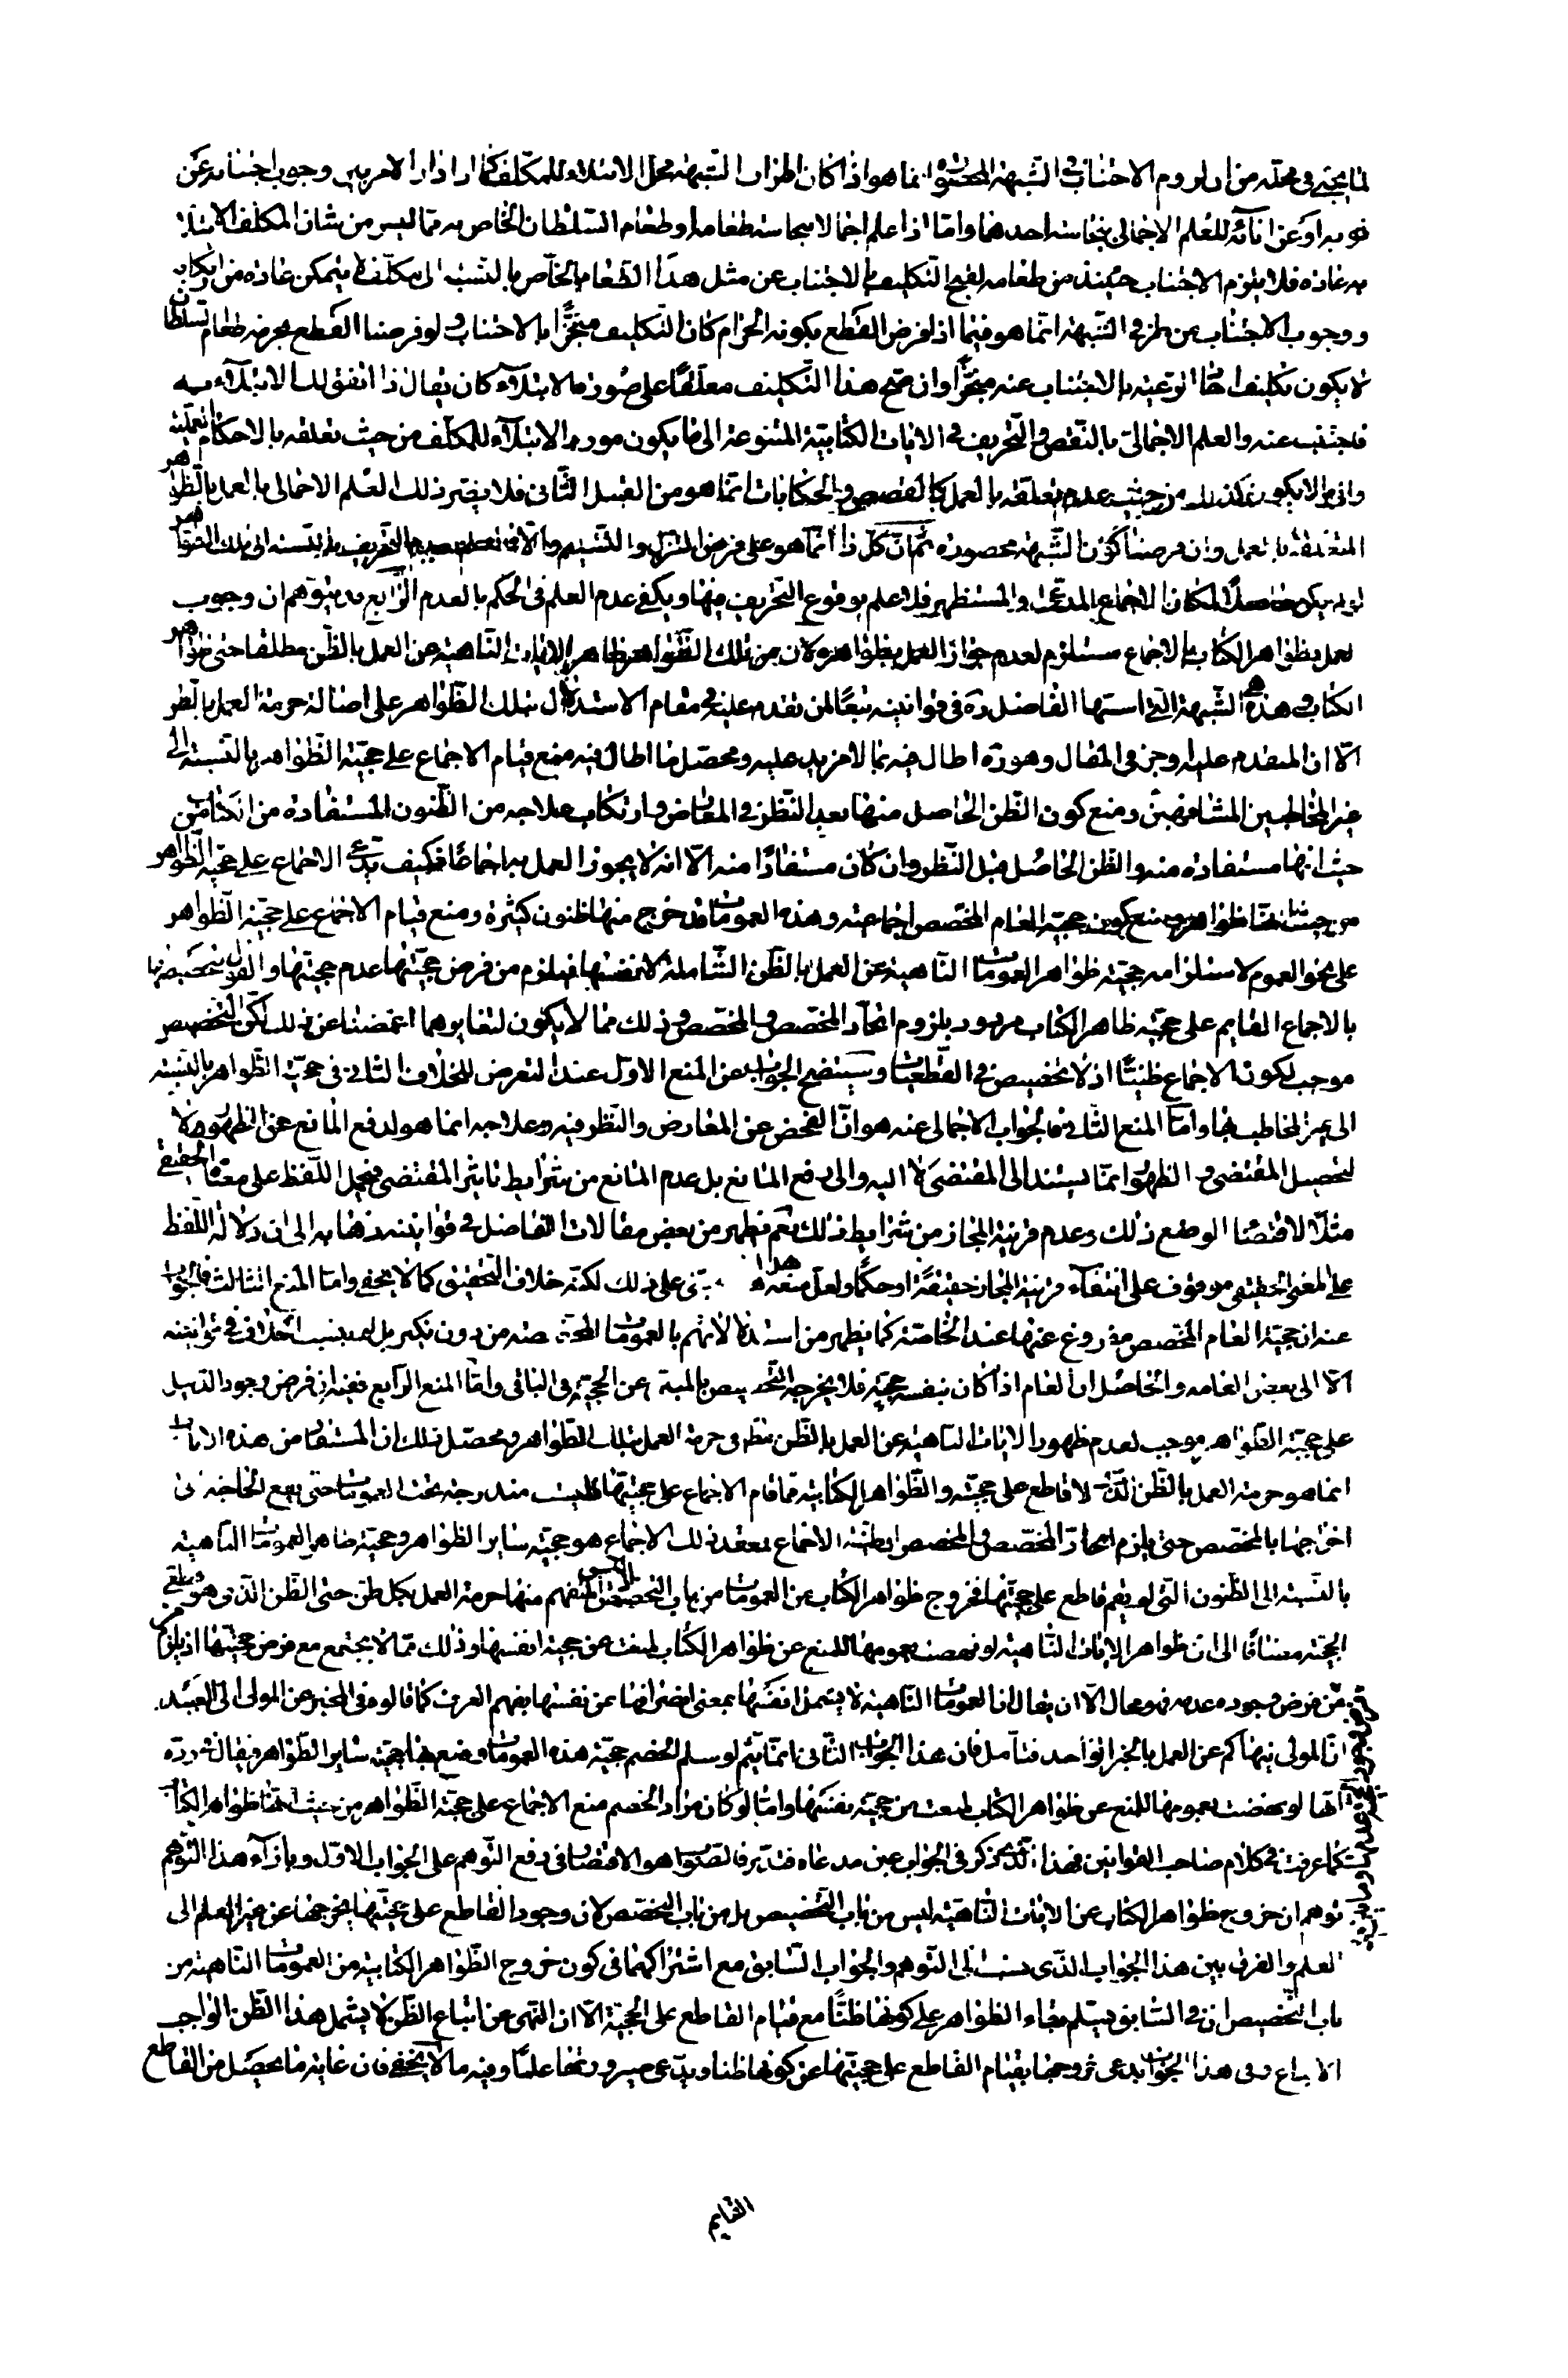 لما يجئ في محله من ان لزوم الاجتناب في الشبهة المحصورة انما هو اذا كان اطراف الشبهة محل الابتلاء للمكلف كما اذا دار الامر بين وجوب اجتنابه عن
ثوبه او عن انائه للعلم الاجمالي بنجاسة احدهما واما اذا علم اجمالا بنجاسة طعامه او طعام السلطان الخاص به مما ليس من شان المكلف الابتلاء
به عادة فلا يلزم الاجتناب حينئذ من طعامه لقبح التكليف بالاجتناب عن مثل هذا الطعام الخاص بالنسبة الى مكلف لا يتمكن عادة من ارتكابه
ووجوب الاجتناب عن طرفي الشبهة انما هو فيما اذا فرض القطع بكونه الحرام كان التكليف منجزا بالاجتناب ولو فرضنا القطع بحرمة طعام السلطان
لا يكون تكليف هذا الرعية بالاجتناب عنه منجزا وان صح هذا التكليف معلقا على صورة الابتلاء كان يقال اذا اتفق لك الابتلاء به
فاجتنب عنه والعلم الاجمالي بالنقص والتحريف في الايات الكتابية المتنوعة الى ما يكون مورد الابتلاء للمكلف من حيث تعلقه بالاحكام العملية
والى ما لا يكون كذلك من حيث عدم تعلقه بالعمل كالقصص والحكايات انما هو من القبيل الثاني فلا يضر ذلك العلم الاجمالي بالعمل بالظواهر
المتعلقة بالعمل وان فرضنا كون الشبهة محصورة ثم ان كل ذا انما هو على فرض التنزل والتسليم والا فالعلم بـ التحريف بالنسبة الى تلك الظواهر
لو لم يكن حاصلا لمكان الاجماع المدعى والمستظهر فلا علم بوقوع التحريف فيها ويكفي عدم العلم في الحكم بالعدم الرابع قد يتوهم ان وجوب
العمل بظواهر الكتاب بالاجماع مستلزم لعدم جواز العمل بظواهره لان من تلك الظواهر ظاهر الايات الناهية عن العمل بالظن مطلقا حتى ظواهر
الكتاب وهذه الشبهة التي اسسها الفاضل ره في قوانينه تبعا لمن تقدم عليه في مقام الاستدلال بتلك الظواهر على اصالة حرمة العمل بالظن
الا ان المتقدم عليه اوجز في المقال وهو ره اطال فيه بما لا مزيد عليه ومحصل ما اطال فيه منع قيام الاجماع على حجية الظواهر بالنسبة الى
غير المخاطبين المشافهين ومنع كون الظن الحاصل منها بعد النظر في المعارض وارتكاب علاجه من الظنون المستفادة من الكتاب من
حيث انها مستفادة منه والظن الحاصل قبل النظر وان كان مستفادا منه الا انه لا يجوز العمل به اجماعا فكيف يدعى الاجماع على حجية الظواهر
من حيث انها ظواهر ومنع كون حجية العام المخصص اجماعية وهذه العمومات قد خرج منها ظنون كثيرة ومنع قيام الاجماع على حجية الظواهر
على نحو العموم لاستلزامه حجية ظواهر العمومات الناهية عن العمل بالظن الشاملة لانفسها فيلزم من فرض حجيتها عدم حجيتها والقول بتخصيصها
بالاجماع القايم على حجية ظاهر الكتاب مردود بلزوم اتحاد المخصص والمخصص وذلك مما لا يكون لتغايرهما اغمضنا عن ذلك لكن التخصيص
موجب لكون الاجماع ظنيا اذ لا تخصيص في القطعيات وسيتضح الجواب عن المنع الاول عند التعرض للخلاف الثاني في حجية الظواهر بالنسبة
الى غير المخاطب بها واما المنع الثاني فالجواب الاجمالي عنه هو ان الفحص عن المعارض والنظر فيه وعلاجه انما هو لدفع المانع عن الظهور لا
لتحصيل المقتضي و الظهور انما يستند الى المقتضي لا اليه والى دفع المانع بل عدم المانع من شرايط تاثير المقتضي فحمل اللفظ على معناه الحقيقي
مثلا لاقتضاء الوضع ذلك وعدم قرينة المجاز من شرايط ذلك نعم يظهر من بعض مقالات الفاضل في قوانينه ذهابه الى ان دلالة اللفظ
على المعنى الحقيقي موقوف على انتفاء قرينة المجاز حقيقة او حكما ولعل منعه هذا مبني على ذلك لكنه خلاف التحقيق كما لا يخفى واما المنع الثالث فالجواب
عنه ان حجية العام المخصص مفروغ عنها عند الخاصة كما يظهر من استدلالاتهم بالعمومات المخصصة من دون نكير بل لم ينسب الخلاف في قوانينه
الا الى بعض العامة والحاصل ان العام اذا كان بنفسه حجية فلا يخرجه التخصيص بالمرة عن الحجية في الباقي واما المنع الرابع ففيه ان فرض وجود الدليل
على حجية الظواهر موجب لعدم ظهور الايات الناهية عن العمل بالظن في حرمة العمل بتلك الظواهر ومحصل ذلك ان المستفاد من هذه الايات
انما هو حرمة العمل بالظن الذي لا قاطع على حجيته والظواهر الكتابية مما قام الاجماع على حجيتها فليست مندرجة تحت العمومات حتى يقع الحاجة الى
اخراجها بالمخصص حتى يلزم اتحاد المخصص والمخصص او ظنية الاجماع فمعقد ذلك الاجماع هو حجية ساير الظواهر وحجية ظاهر العمومات الناهية
بالنسبة الى الظنون التي لم يقم قاطع على حجيتها فخروج ظواهر الكتاب عن العمومات من باب التخصص اذ ليس المنفهم منها حرمة العمل بكل ظن حتى الظن الذي هو قطعي
الحجية مضافا الى ان ظواهر الايات الناهية لو نهضت بعمومها للمنع عن ظواهر الكتاب لمنعت عن حجية انفسها وذلك مما لا يجتمع مع فرض حجيتها اذ يلزم
من فرض وجوده عدمه فهو محال الا ان يقال ان العمومات الناهية لا يشمل انفسها بمعنى انصرافها عن نفسها بفهم العرف كما قالوه في المخبر عن المولى الى العبيد
ان المولى نهاكم عن العمل بالخبر الواحد فتامل فان هذا الجواب الثاني انما يتم لو سلم الخصم حجية هذه العمومات ومنع بها حجية ساير الظواهر فيقال في رده
انها لو نهضت بعمومها للمنع عن ظواهر الكتاب لمنعت عن حجية نفسها واما لو كان مراد الخصم منع الاجماع على حجية الظواهر من حيث انها ظواهر الكتاب
كما عرفت في كلام صاحب القوانين فهذا الذي ذكر في الجواب عين مدعاه فتدبر فالصواب هو الاقتصار في دفع التوهم على الجواب الاول وبازاء هذا التوهم
توهم ان خروج ظواهر الكتاب عن الايات الناهية ليس من باب التخصيص بل من باب التخصص لان وجود القاطع على حجيتها يخرجها عن غير العلم الى
العلم والفرق بين هذا الجواب الذي نسب الى التوهم والجواب السابق مع اشتراكهما في كون خروج الظواهر الكتابية من العمومات الناهية من
باب التخصص ان في السابق يسلم بقاء الظواهر على كونها ظنا مع قيام القاطع على الحجية الا ان النهي عن اتباع الظن لا يشمل هذا الظن الواجب
الاتباع وفي هذا الجواب يدعى خروجها بقيام القاطع على حجيتها عن كونها ظنا ويدعى صيرورتها علما وفيه ما لا يخفى فان غاية ما يحصل من القاطع
القايم